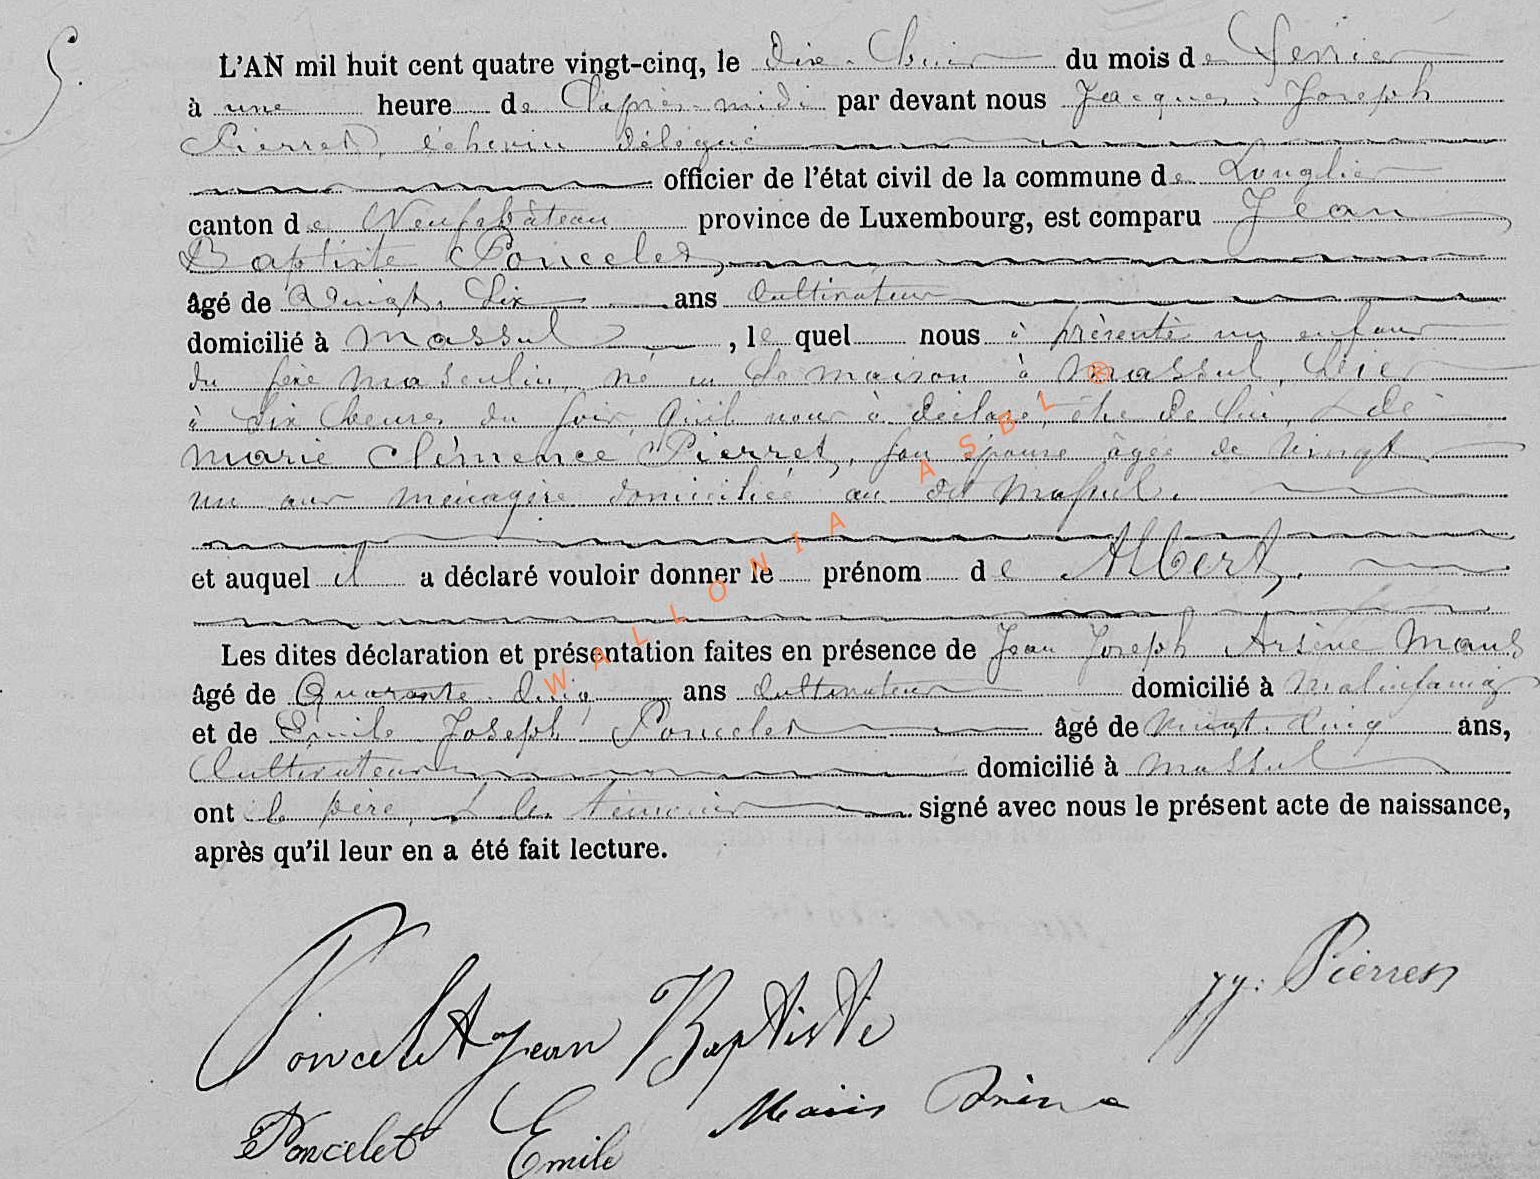 5.
L'AN mil huit cent quatre vingt-cinq, le dix-huit du mois de février
à une heure de l'après-midi par devant nous Jacques Joseph
Pierret, échevin délégué
officier de l'état civil de la commune de Longlier
canton de Neufchâteau province de Luxembourg, est comparu Jean
Baptiste Poncelet,
âgé de vingt-six ans cultivateur
domicilié à Massul, lequel nous a présenté un enfant
du sexe masculin, né en sa maison à Massul, hier
à dix heures du soir, qu'il nous a déclaré être de lui, & de
Marie Clémence Pierret, son épouse âgée de vingt
un ans ménagère domiciliée au dit Massul.
et auquel il a déclaré vouloir donner le prénom de Albert,
Les dites déclaration et présentation faites en présence de Jean Joseph Arsène
âgé de Quarante-cinq ans cultivateur domicilié à Molinfaing
et de Emile Joseph Poncelet âgé de vingt-cinq ans,
cultivateur domicilié à Massul
ont le père, & les témoins signé avec nous le présent acte de naissance,
après qu'il leur en a été fait lecture.
WALLONIA ASBL ®
JJ. Pierret
Poncelet Jean Baptiste
Poncelet Emile